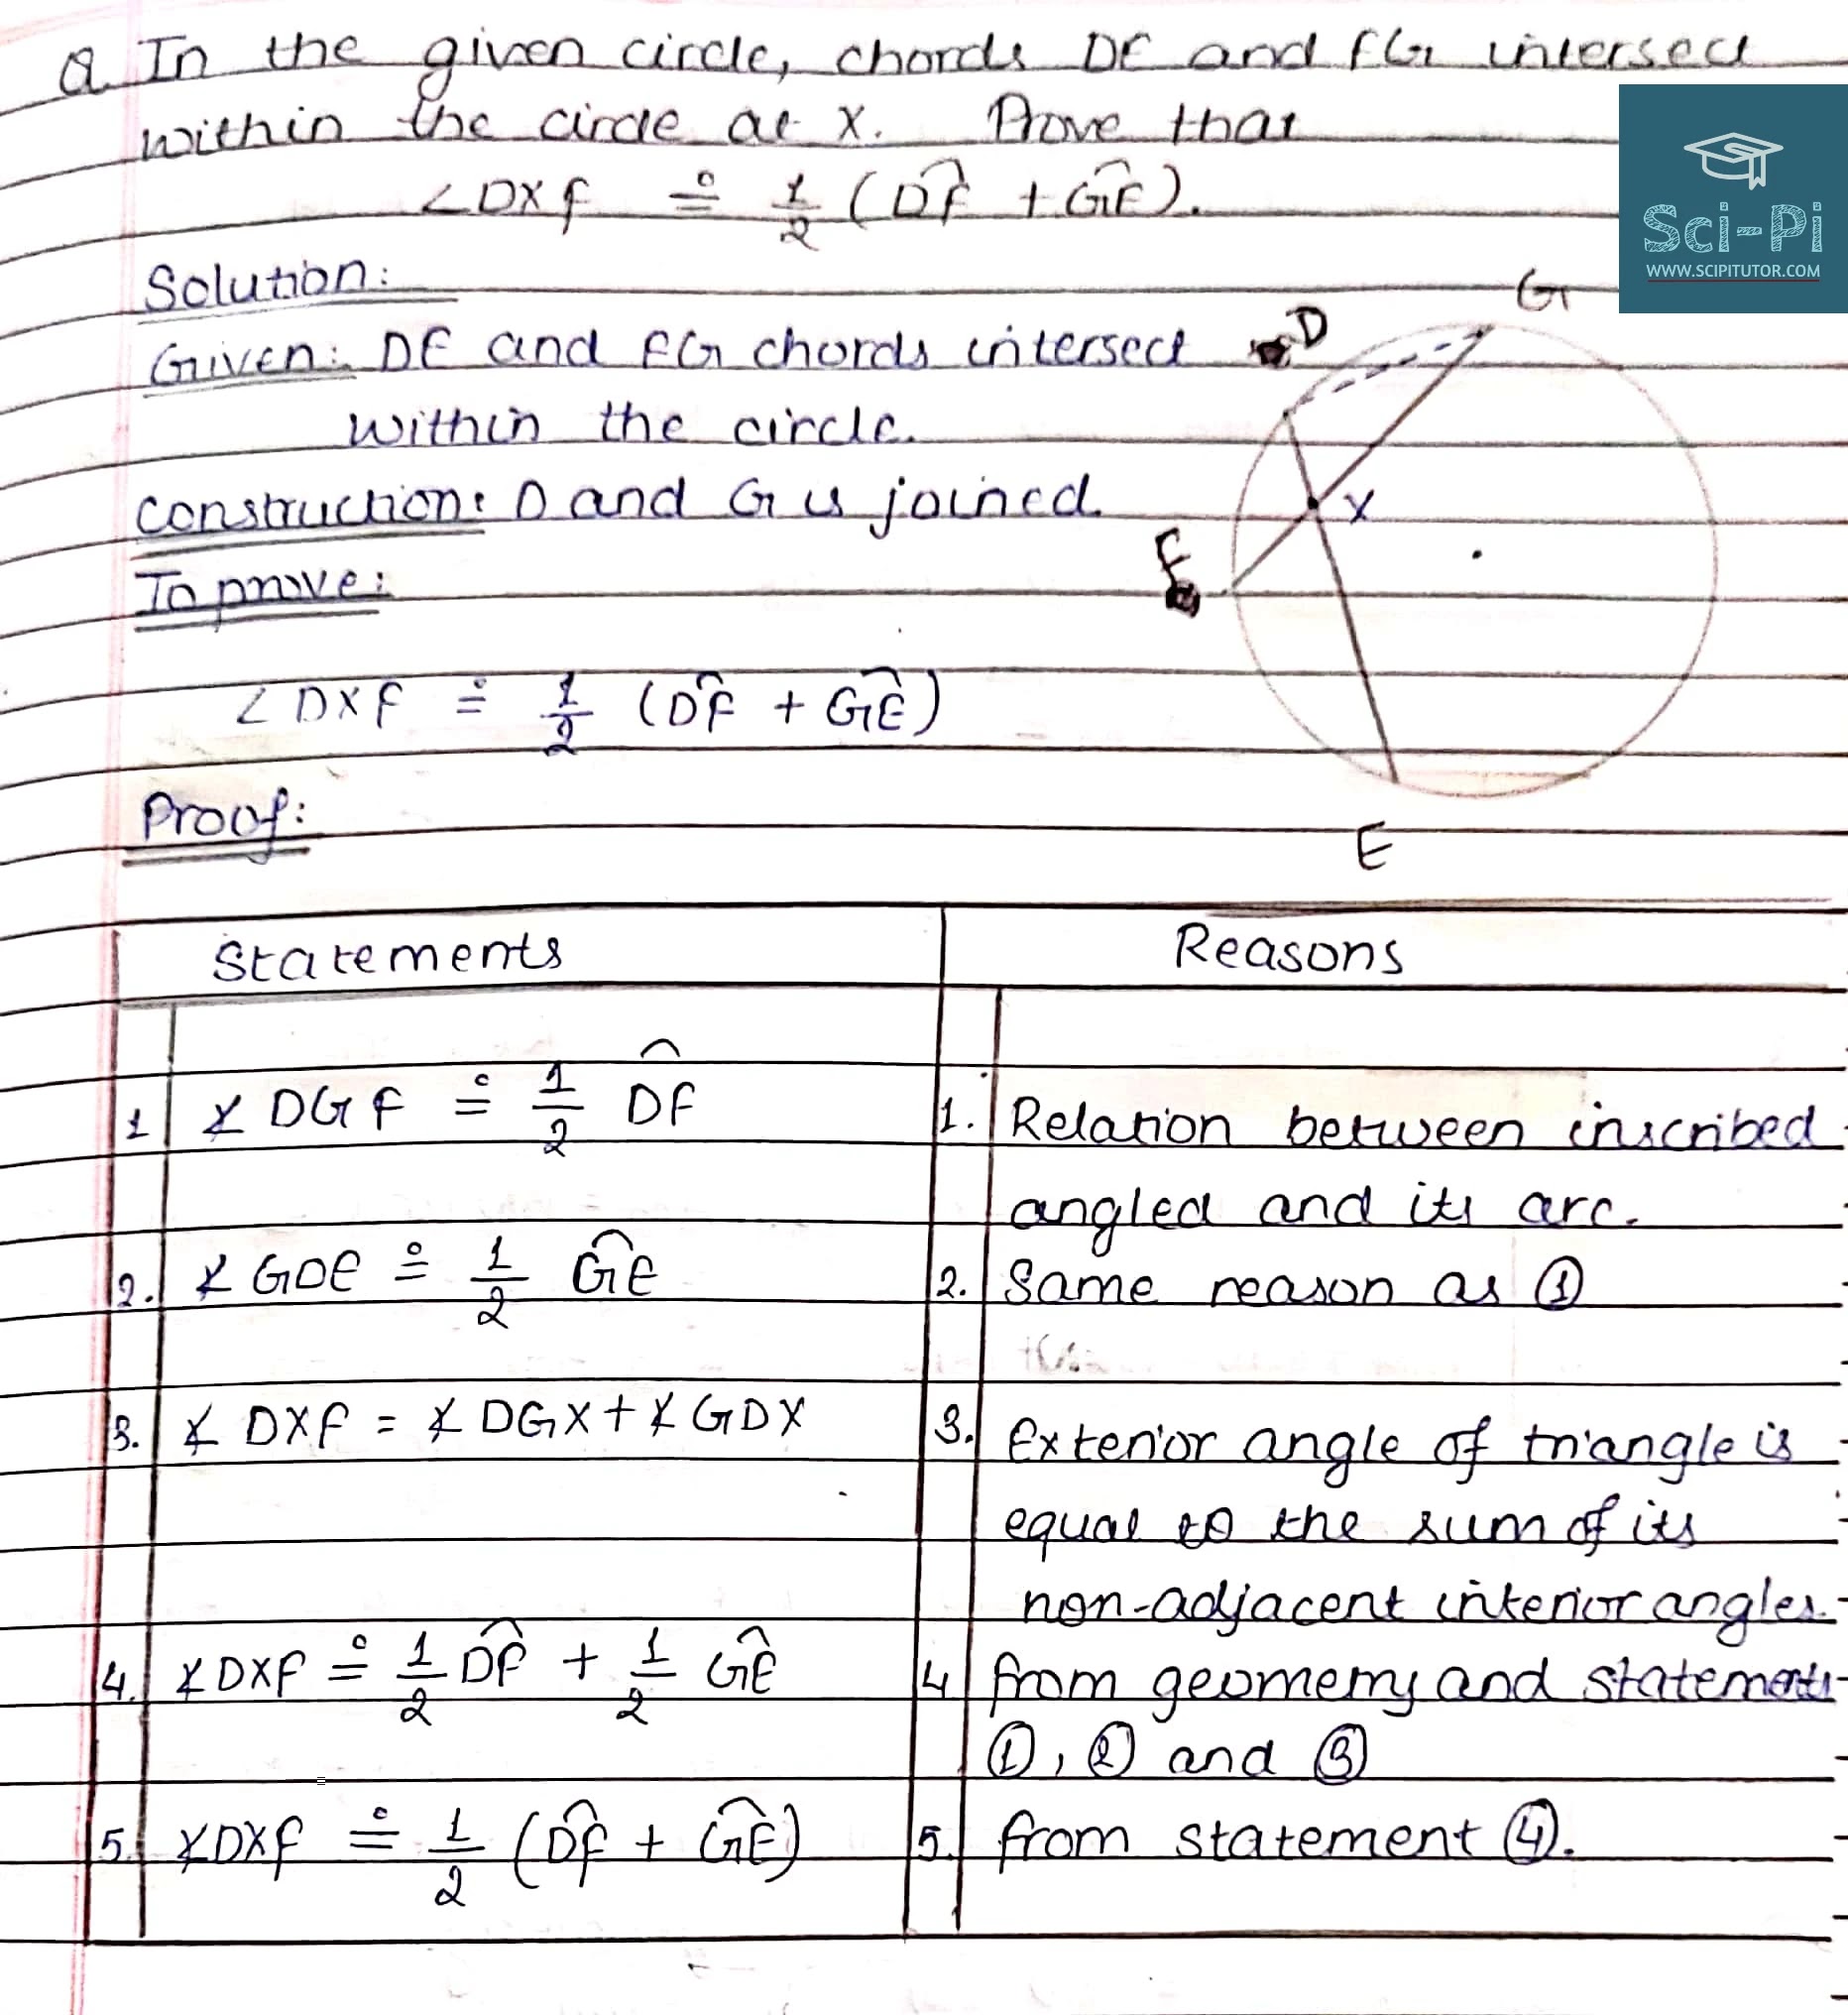 Q. In the given circle, chords DE and FG intersect
within the circle at X. Prove that
∠DXF ≗ 1/2 (D͡F + G͡E).
Sci-Pi
WWW.SCIPITUTOR.COM
Solution:
Given: DE and FG chords intersect
within the circle.
Construction: D and G is joined.
To prove:
∠DXF ≗ 1/2 (D͡F + G͡E)
G
D
X
F
E
Proof:
Statements Reasons
1 ∡DGF ≗ 1/2 D͡F 1. Relation between inscribed
angled and its arc.
2. ∡GDE ≗ 1/2 G͡E 2. Same reason as ①
3. ∡DXF = ∡DGX + ∡GDX 3. Exterior angle of triangle is
equal to the sum of its
non-adjacent interior angles.
4. ∡DXF ≗ 1/2 D͡F + 1/2 G͡E 4 from geometry and statements
①, ② and ③
5. ∡DXF ≗ 1/2 (D͡F + G͡E) 5. from statement ④.